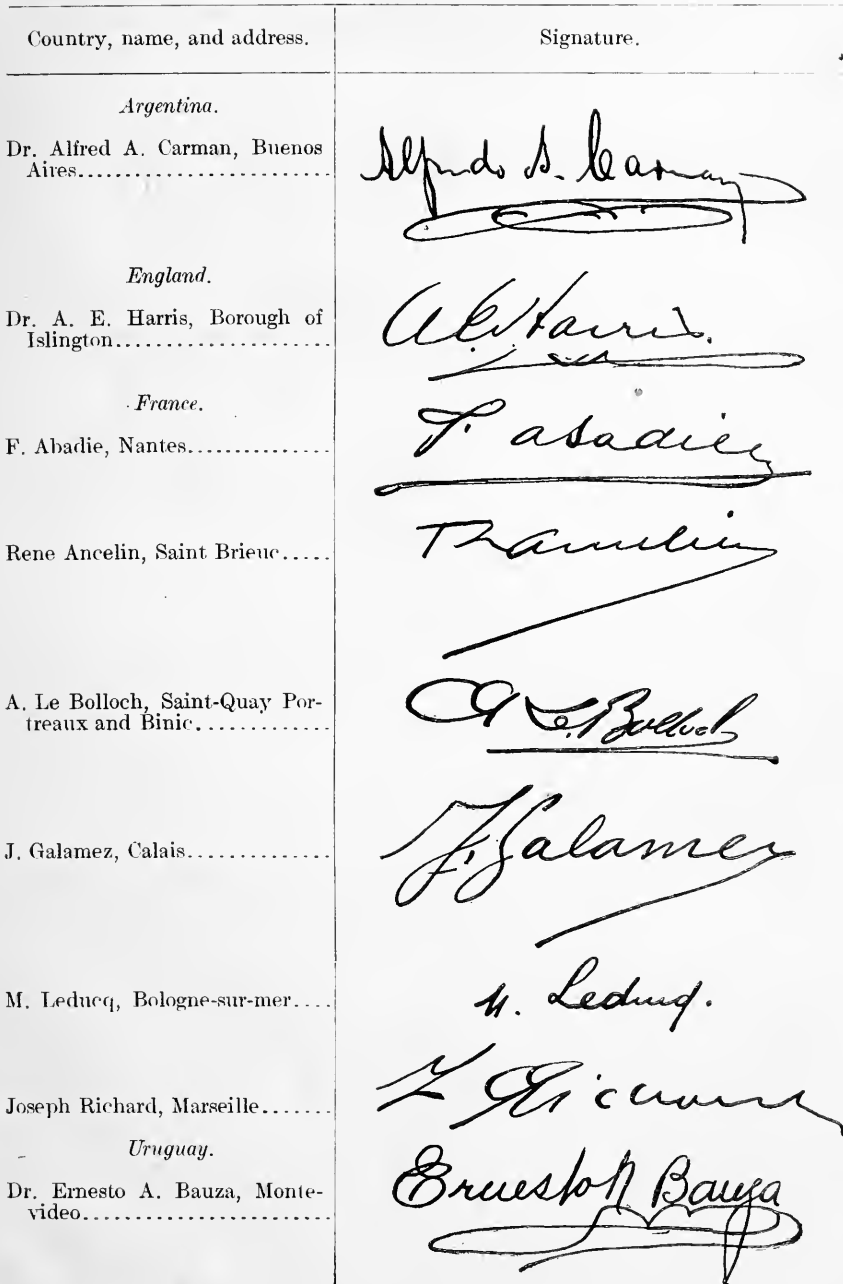 Country, name, and address. Signature.
Argentina.
Dr. Alfred A. Carman, Buenos
Aires........................ Alfredo A. Carman
England.
Dr. A. E. Harris, Borough of
Islington.................... A. E. Harris.
France.
F. Abadie, Nantes.............. F. Abadie
Rene Ancelin, Saint Brieuc.....
A. Le Bolloch, Saint-Quay Por-
treaux and Binic............. A Le Bolloch
J. Galamez, Calais............. J. Galamez
M. Leducq, Bologne-sur-mer.... M. Leducq.
Joseph Richard, Marseille.......
Uruguay.
Dr. Ernesto A. Bauza, Monte-
video........................ Ernesto A Bauza